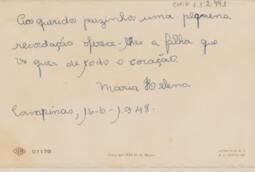 Aos queridos paizinhos uma pequena
recordação oferece-lhes a filha que
vs quer de todo o coração.
Maria Helena
Campinas, 13-6-1948.
01170